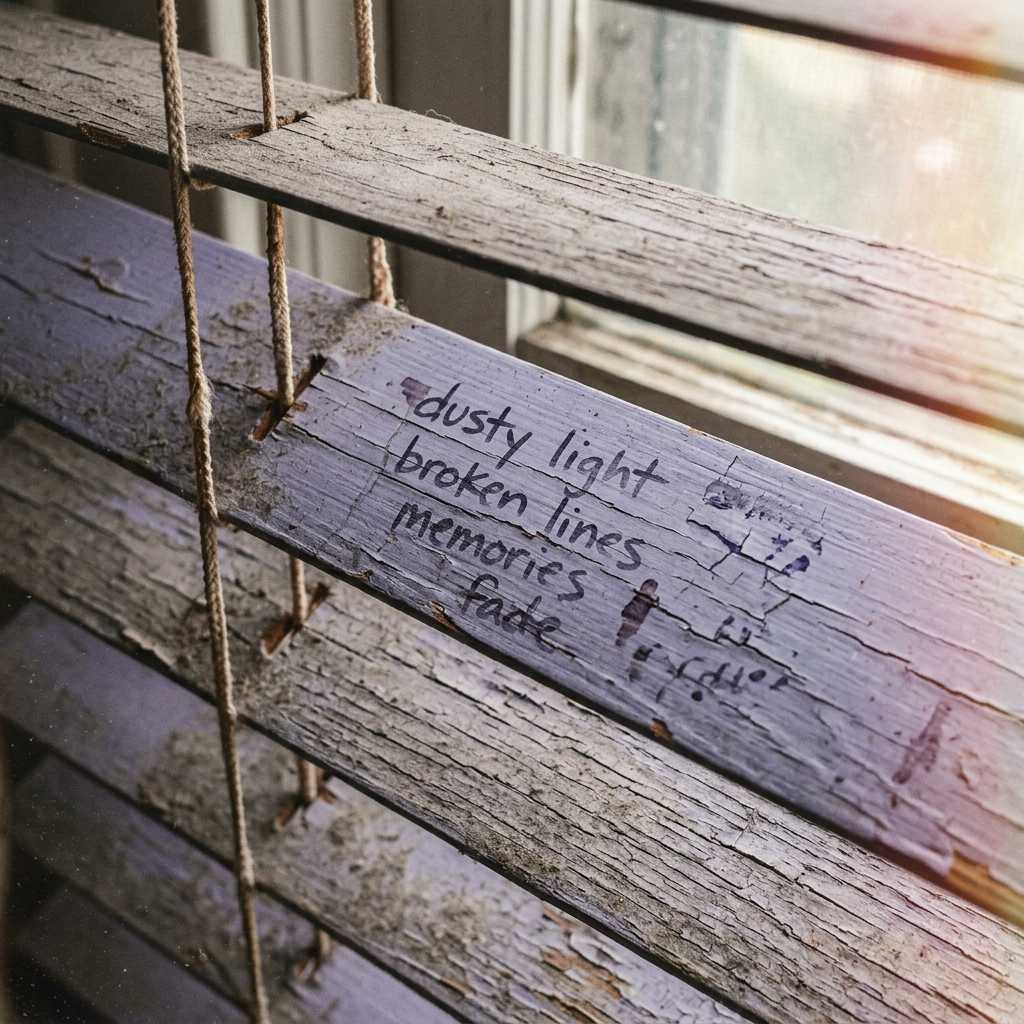 dusty light
broken lines
memories
fade